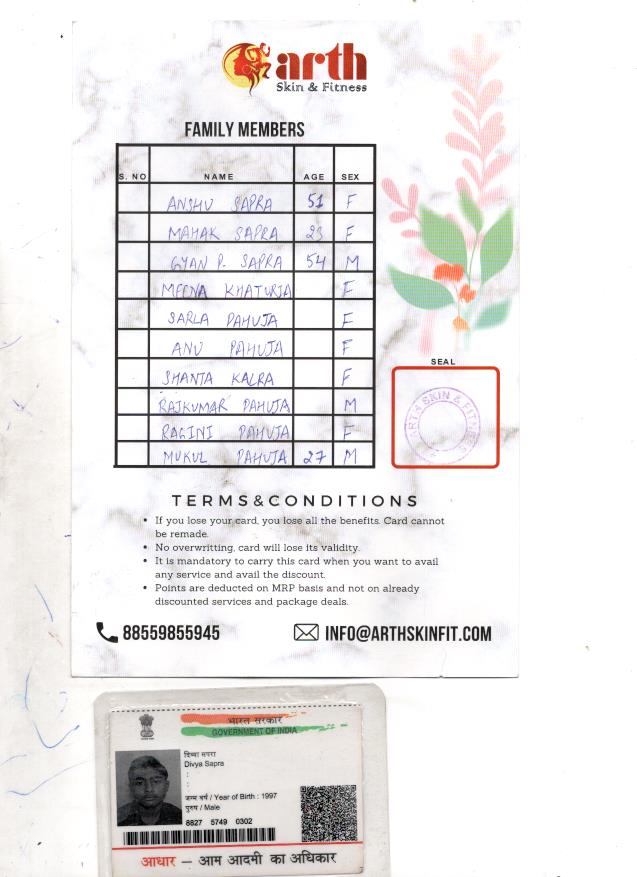 arth
Skin & Fitness
FAMILY MEMBERS
S. NO NAME AGE SEX
ANSHU SAPRA 51 F
MAHAK SAPRA 23 F
GYAN P. SAPRA 54 M
MEENA KHATURIA F
SARLA PAHUJA F
ANU PAHUJA F
SHANTA KALRA F
RAJKUMAR PAHUJA M
RAGINI PAHUJA F
MUKUL PAHUJA 27 M
SEAL
ARTH SKIN & FITNESS
TERMS&CONDITIONS
• If you lose your card, you lose all the benefits. Card cannot
be remade.
• No overwritting, card will lose its validity.
• It is mandatory to carry this card when you want to avail
any service and avail the discount.
• Points are deducted on MRP basis and not on already
discounted services and package deals.
88559855945
INFO@ARTHSKINFIT.COM
भारत सरकार
GOVERNMENT OF INDIA
दिव्या सपरा
Divya Sapra
:
:
जन्म वर्ष / Year of Birth : 1997
पुरुष / Male
8827 5749 0302
आधार — आम आदमी का अधिकार